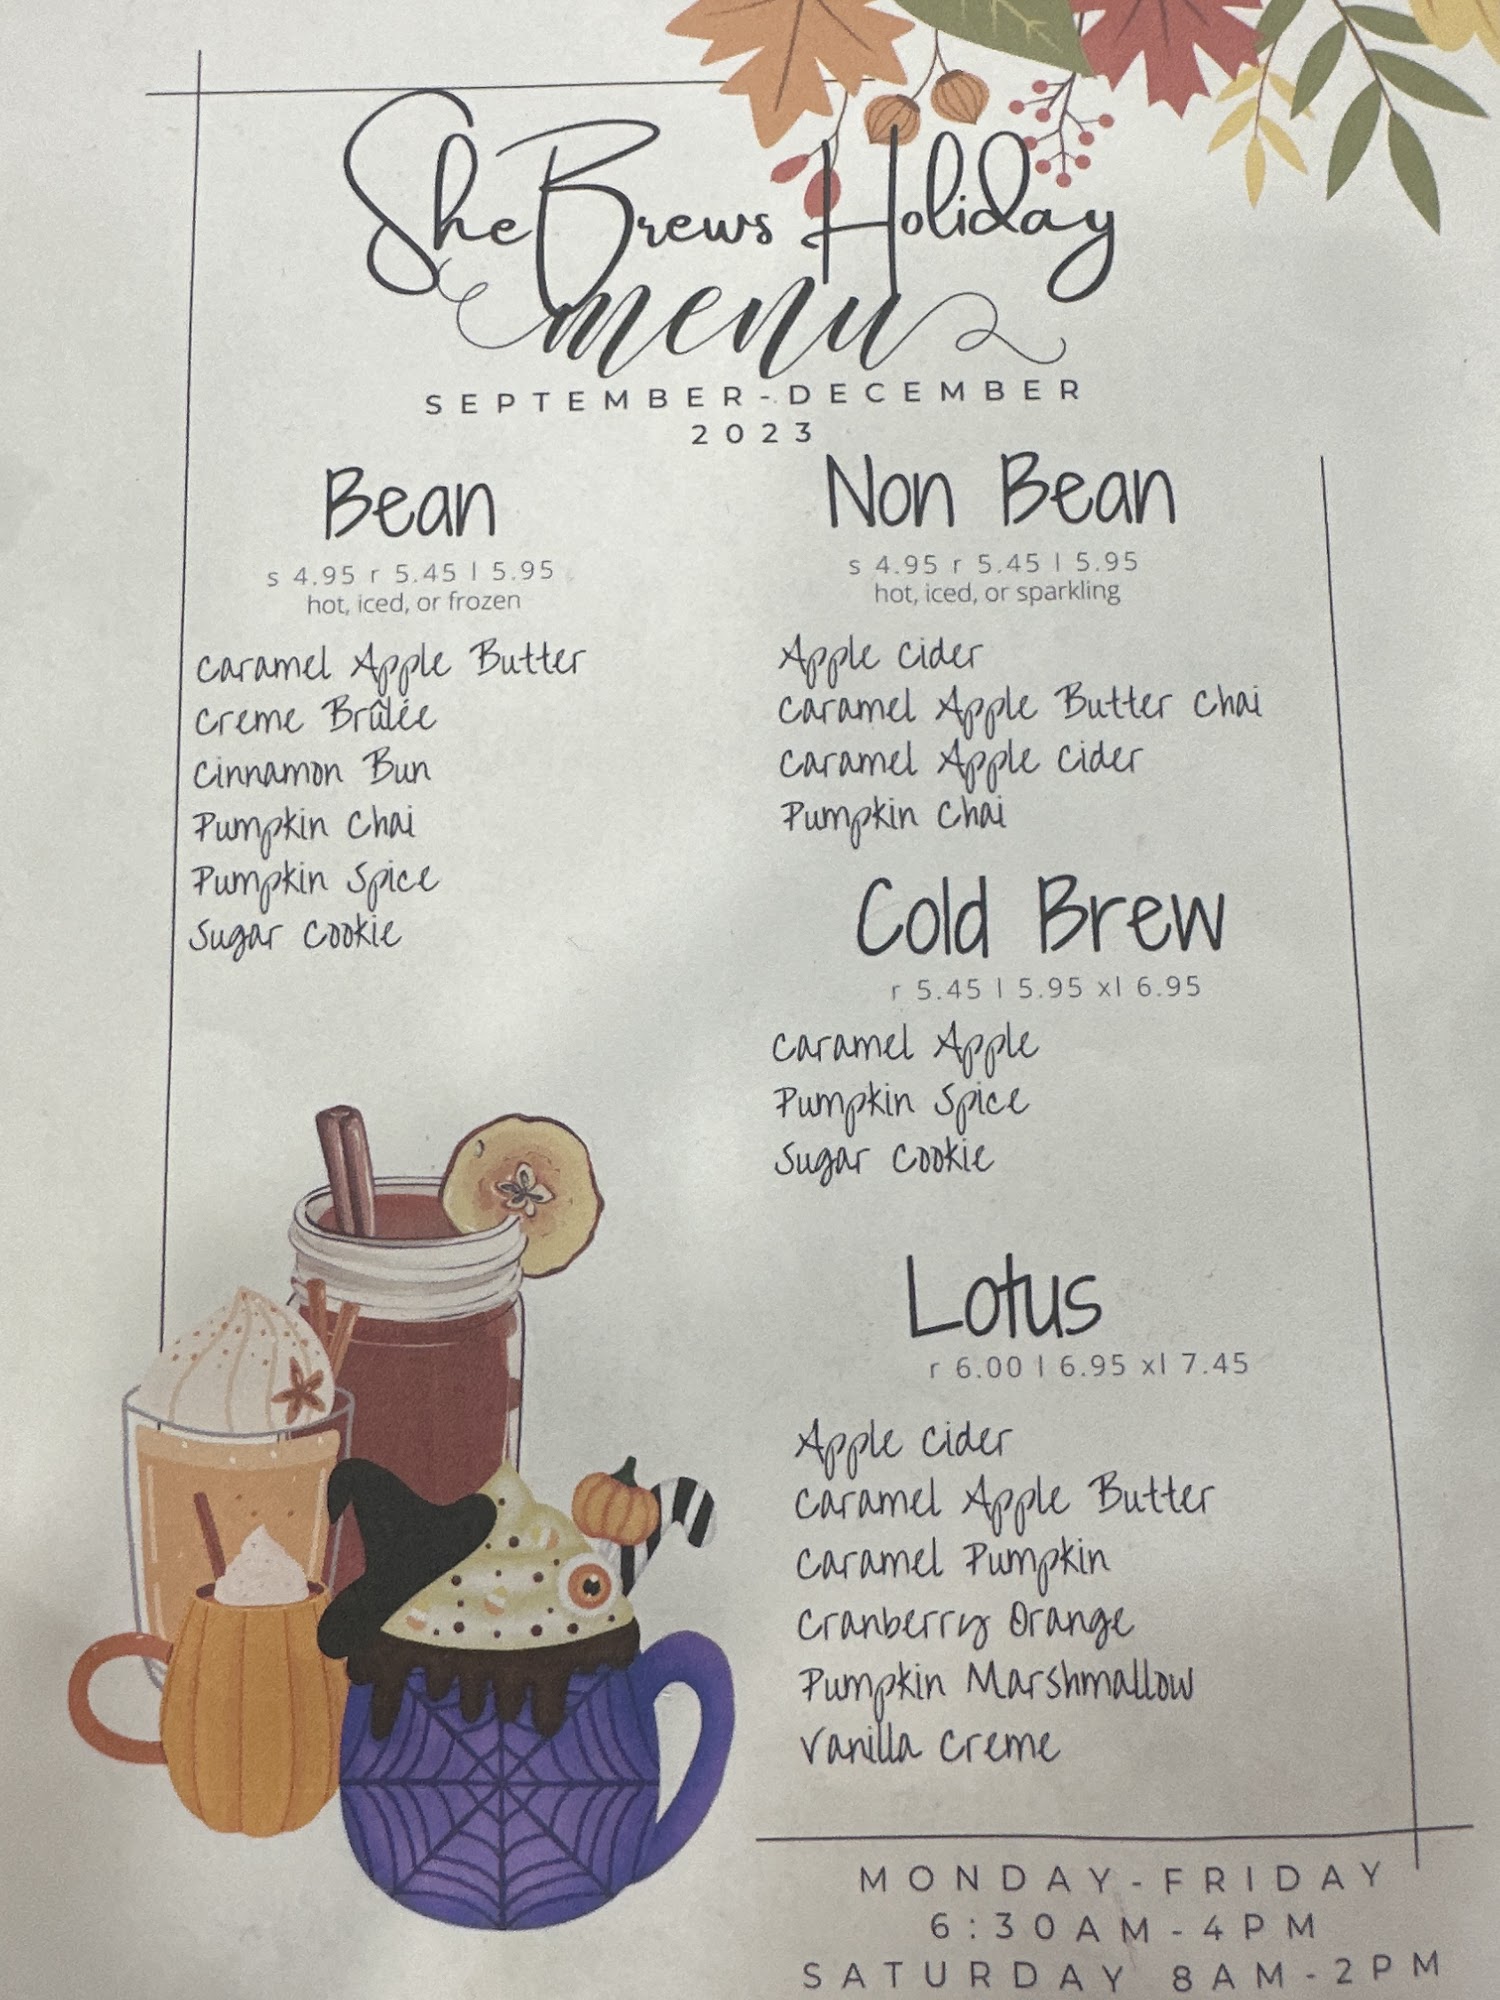 SheBrews Holiday
menu
SEPTEMBER-DECEMBER
2023
Bean
s 4.95 r 5.45 l 5.95
hot, iced, or frozen
Caramel Apple Butter
Creme Brûlée
Cinnamon Bun
Pumpkin Chai
Pumpkin Spice
Sugar Cookie
Non Bean
s 4.95 r 5.45 l 5.95
hot, iced, or sparkling
Apple Cider
Caramel Apple Butter Chai
Caramel Apple Cider
Pumpkin Chai
Cold Brew
r 5.45 l 5.95 xl 6.95
Caramel Apple
Pumpkin Spice
Sugar Cookie
Lotus
r 6.00 l 6.95 xl 7.45
Apple Cider
Caramel Apple Butter
Caramel Pumpkin
Cranberry Orange
Pumpkin Marshmallow
Vanilla Creme
MONDAY-FRIDAY
6:30AM-4PM
SATURDAY 8AM-2PM